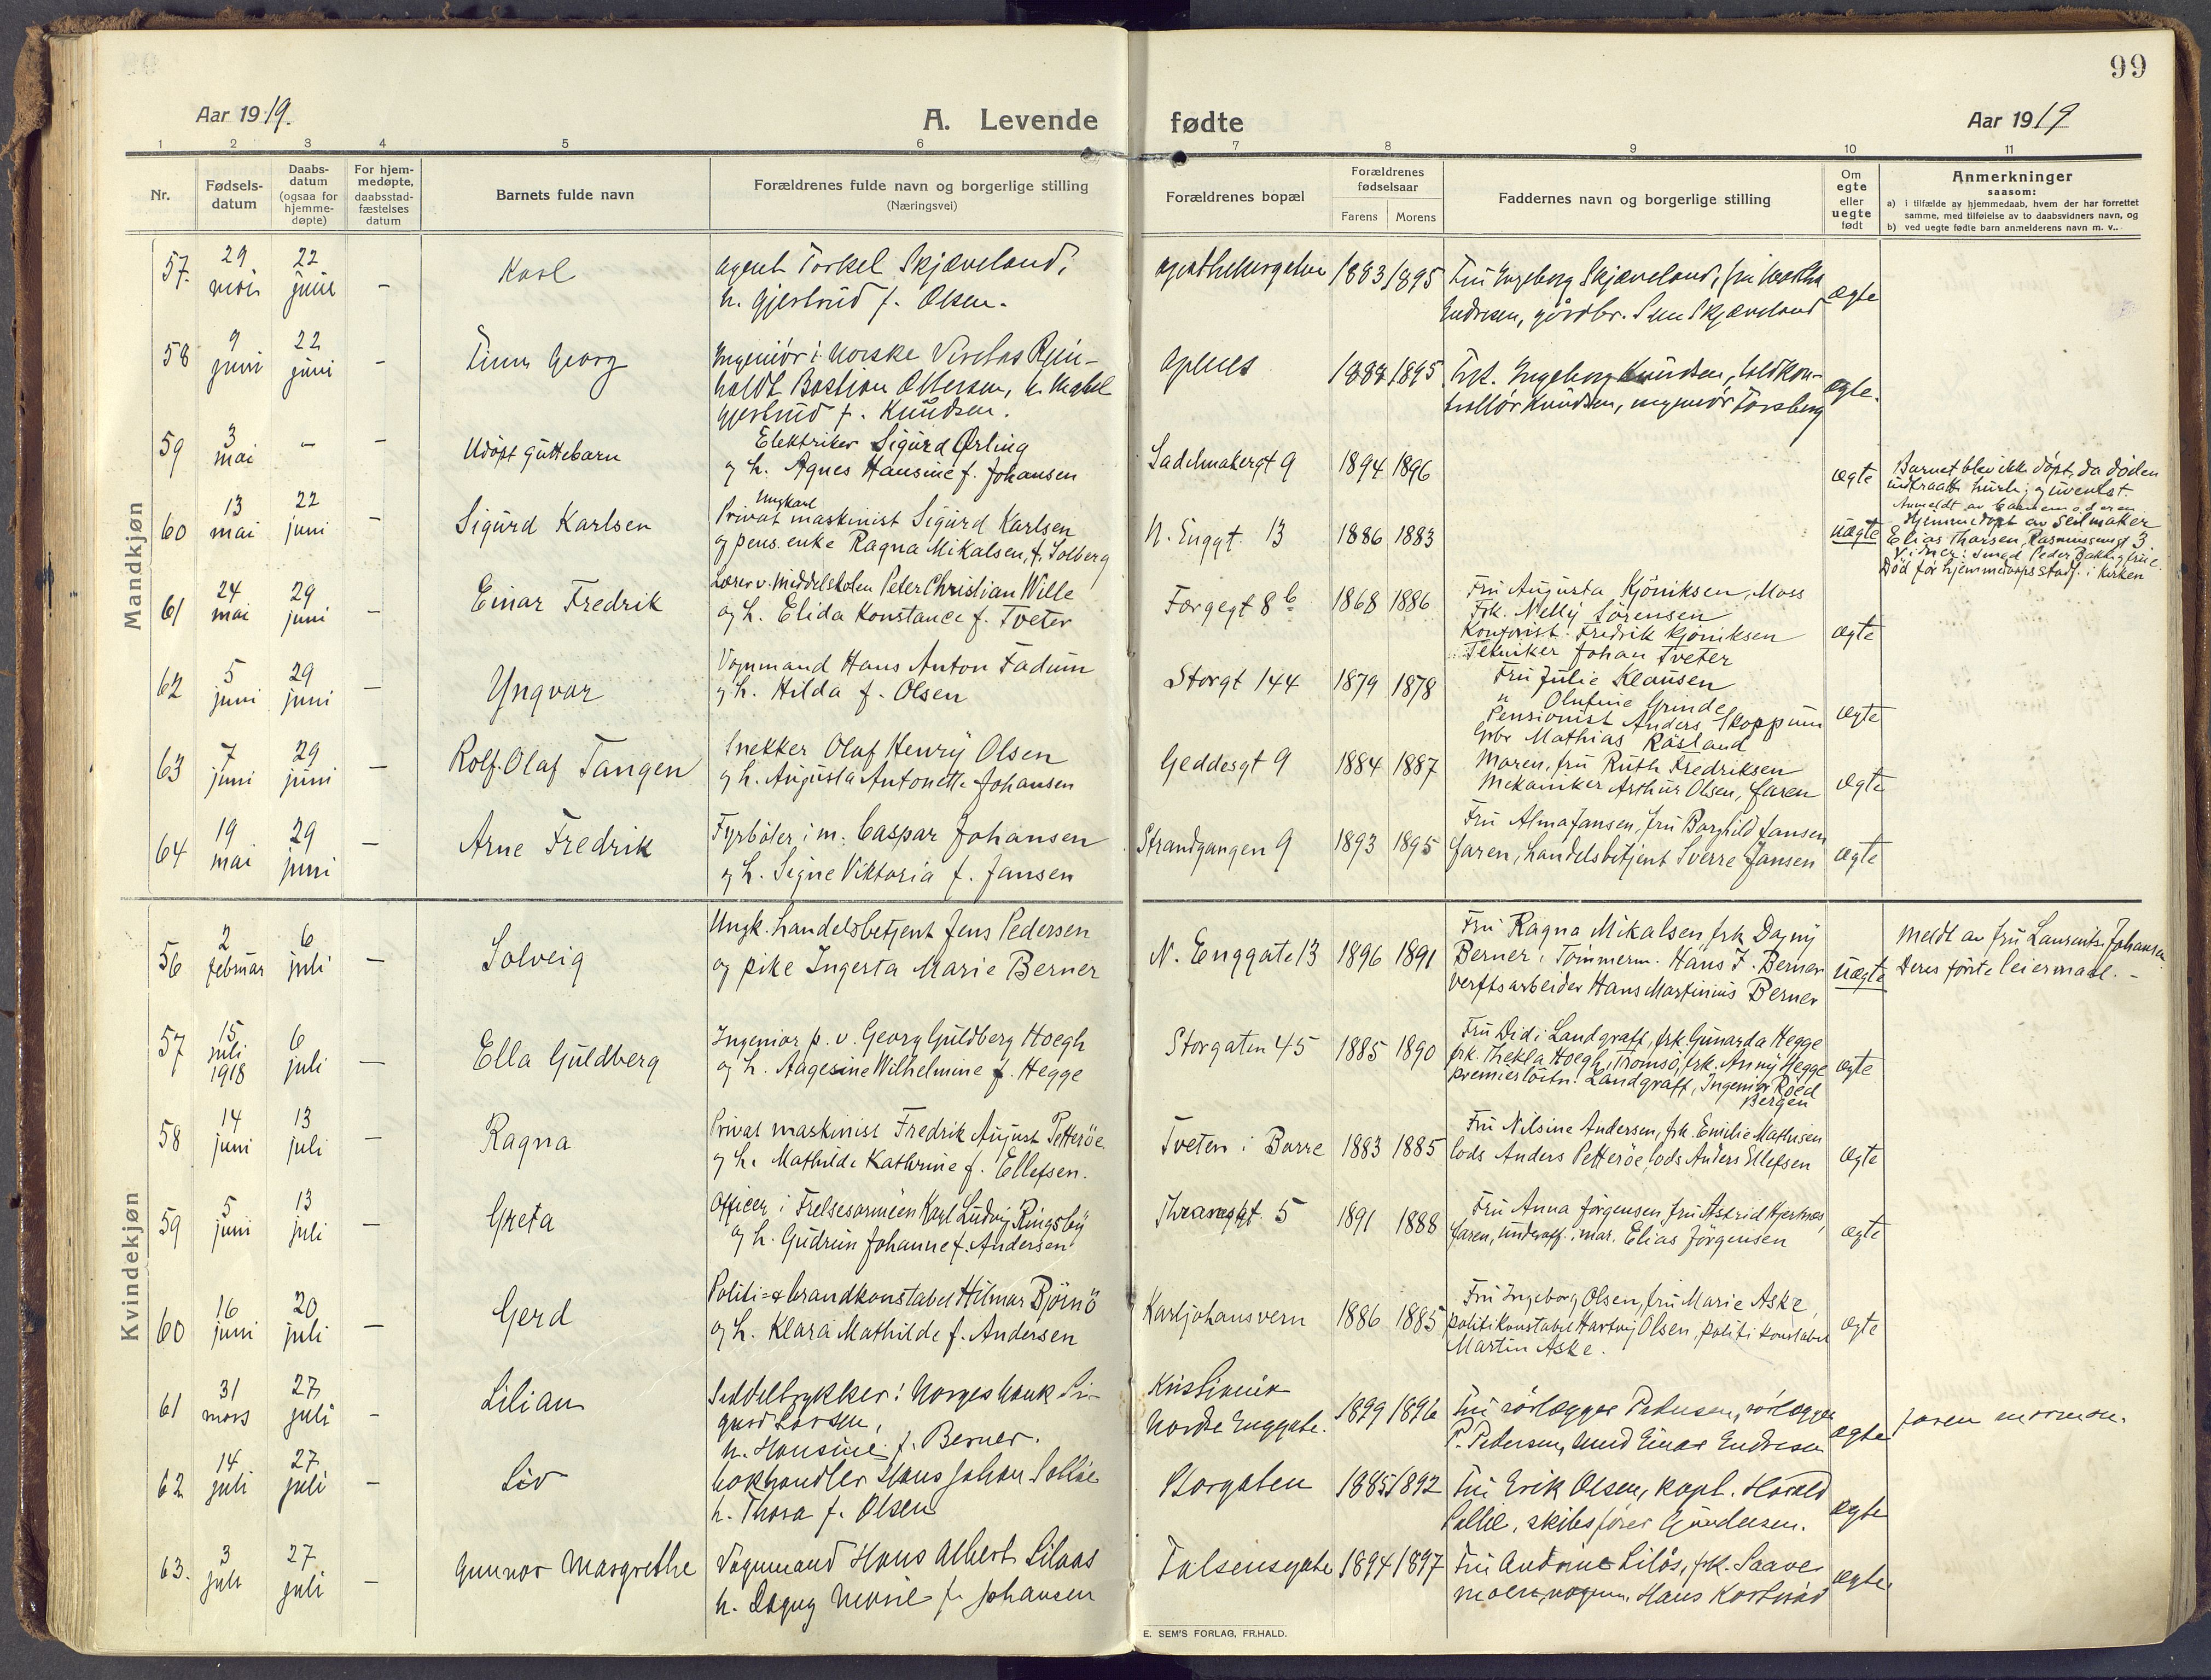 99
Aar 1919.
A. Levende fødte
Aar 1919
1 2 3 4 5 6 7 8 9 10 11
Nr.
Fødsels-
datum
Daabs-
datum
(ogsaa for
hjemme-
døpte)
For hjem-
medøpte,
daabsstad-
fæstelses
datum
Barnets fulde navn
Forældrenes fulde navn og borgerlige stilling
(Næringsvei)
Forældrenes bopæl
Forældrenes
fødselsaar
Farens Morens
Faddernes navn og borgerlige stilling
Om
egte
eller
uegte
født
Anmerkninger
saasom:
a) i tilfælde av hjemmedaab, hvem der har forrettet
samme, med tilføielse av to daabsvidners navn, og
b) ved uegte fødte barn anmelderens navn m. v..
Mandkjøn
57. 29 mai 22 juni – Karl
agent Torkel Skjæveland,
h. Gjertrud f. Olsen.
Apothekergaten 1883 1895
Fru Ingeborg Skjæveland, fru
Endresen, gårdbr. Skjæveland
ægte
58 9 juni 22 juni – Finn Georg
Ingeniör i Norske Veritas Rein-
holdt Bastian Ottersen, h. Mabel
Gjertrud f. Knudsen.
1895
Frk. Ingeborg Knudsen, toldkon-
trollör Knudsen, ingeniör Forsberg
ægte.
59 3 mai – – Udöpt guttebarn
Elektriker Sigurd Ørling
og h. Agnes Hansine f. Johansen
Sadelmakergt 9 1894 1896
ægte
Barnet blev ikke döpt, da döden
indtraatt hurtig og uventet.
60 13 mai 22 juni – Sigurd Karlsen
Ungkarl
Privat maskinist Sigurd Karlsen
og pens. enke Ragna Mikalsen, f. Solberg
N. Enggt. 13 1886 1883
uægte
Hjemmedöpt av Seilmaker
Elias Thorsen, Rasmussengt 3
Vidner: Smed Peder
Död för hjemmedaapsstadf. i kirken
61 24 mai 29 juni – Einar Fredrik
Lærer v. Middelskolen Peter Christian Wille
og h. Elida Konstance f. Tveter
Færgegt 8 b 1868 1886
Fru Augusta Kjöniksen, Moss
Frk. Nelly Sörensen
Kontorist Fredrik Kjöniksen
Tekniker Johan Tveter
ægte
62 5 juni 29 juni – Yngvar
Vognmand Hans Anton Fadum
og h. Hilda f. Olsen
Storgt 144 1879 1878
Fru Julie Klausen
" Olufine Grinde
Pensionist Anders Skoppum
Gbr Mathias Råstad
ægte
63 7 juni 29 juni – Rolf Olaf Tangen
Snekker Olaf Henry Olsen
og h. Augusta Antonette Johansen
Geddesgt 9 1884 1887
Moren, fru Ruth Fredriksen
Mekaniker Arthur Olsen, faren
ægte
64 19 mai 29 juni – Arne Fredrik
Fyrböter i m. Caspar Johansen
og h. Signe Viktoria f. Jansen
Strandgangen 9 1893 1895
Fru Alma Jansen, fru Borghild Jansen
faren, handelsbetjent Sverre Jansen
ægte
Kvindekjøn
56 2 februar 6 juli – Solveig
Ungk. handelsbetjent Jens Pedersen
og pike Ingerta Marie Berner
N. Enggate 13 1896 1891
Fru Ragna Mikalsen, frk Dagny
Berner, Tömmerm. Hans F. Berner
Verftsarbeider Hans Martinius Berner
uægte
Meldt av fru Laurentze Johansen
Deres förste leiermaal. –
57 15 juli 1918 6 juli – Ella Guldberg
Ingeniör p. v. Georg Guldberg Hoegh
og h. Aagesine Wilhelmine f. Hegge
Storgaten 45 1885 1890
Fru Didi Landgraff, frk. Gunarda Hegge
frk. Thekla Hoegh, Tromsö, frk. Anny Hegge
premierlöitn. Landgraff, Ingeniör Roed
Bergen
ægte
58 14 juni 13 juli – Ragna
Privat maskinist Fredrik August Petteröe
og h. Mathilde Kathrine f. Ellefsen.
Tveten i Borre 1883 1885
Fru Nilsine Andersen, frk. Emilie Mathisen
lods Anders Petteröe, lods Anders Ellefsen
ægte
59 5 juni 13 juli – Greta
Officer i Frelsesarmeen Karl Ludvig Ringsby
og h. Gudrun Johanne f. Andersen
Thranesgt. 5 1891 1888
Fru Anna Jörgensen, fru Astrid Hjertnes,
faren, underoff. i mar. Elias Jörgensen
ægte
60 16 juni 20 juli – Gerd
Politi- & brandkonstabel Hilmar Björnö
og h. Klara Mathilde f. Andersen
Karljohansvern 1886 1885
Fru Ingeborg Olsen, fru Marie Aske,
politikonstabel Hartvig Olsen, politikonstabel
Martin Aske.
ægte
61 31 mars 27 juli – Lilian
Seddeltrykker i Norges bank Si-
gurd Larsen,
h. Hansine f. Berner.
Kristiania
Nordre Enggate. 1899 1896
Fru rörlægger Pedersen, rörlægger
P. Pedersen, Einar Endresen
ægte
faren mormon.
62 14 juli 27 juli – Liv
bokhandler Hans Johan Sollie
h. Thora f. Olsen
Storgaten 1885 1892
Fru Erik Olsen, kapt. Harald
Sollie, skibsförer Gundersen.
ægte
63. 3 juli 27 juli – Gunvor Margrethe
Vognmand Hans Albert Lilaas
h. Dagny Marie f. Johansen
Falsensgate 1894 1897
Fru Andrine Lilås, frk.
Hans
ægte.
E. SEM'S FORLAG, FR.HALD.